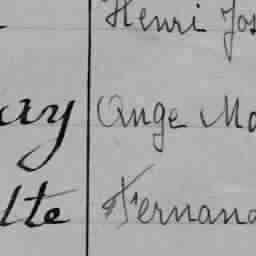 Henri Jos
ay Ange Ma
lte Fernand